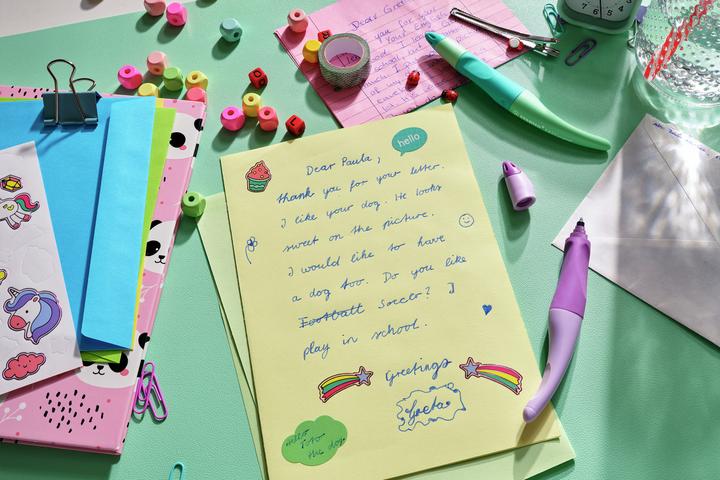 Dear Gret
you for your
Your Engl
hello
Dear Paula,
thank you for your letter.
I like your dog. He looks
sweet on the picture.
I would like to have
a dog too. Do you like
Football Soccer? I
play in school.
Greetings
Greta
Hello
to
the dog